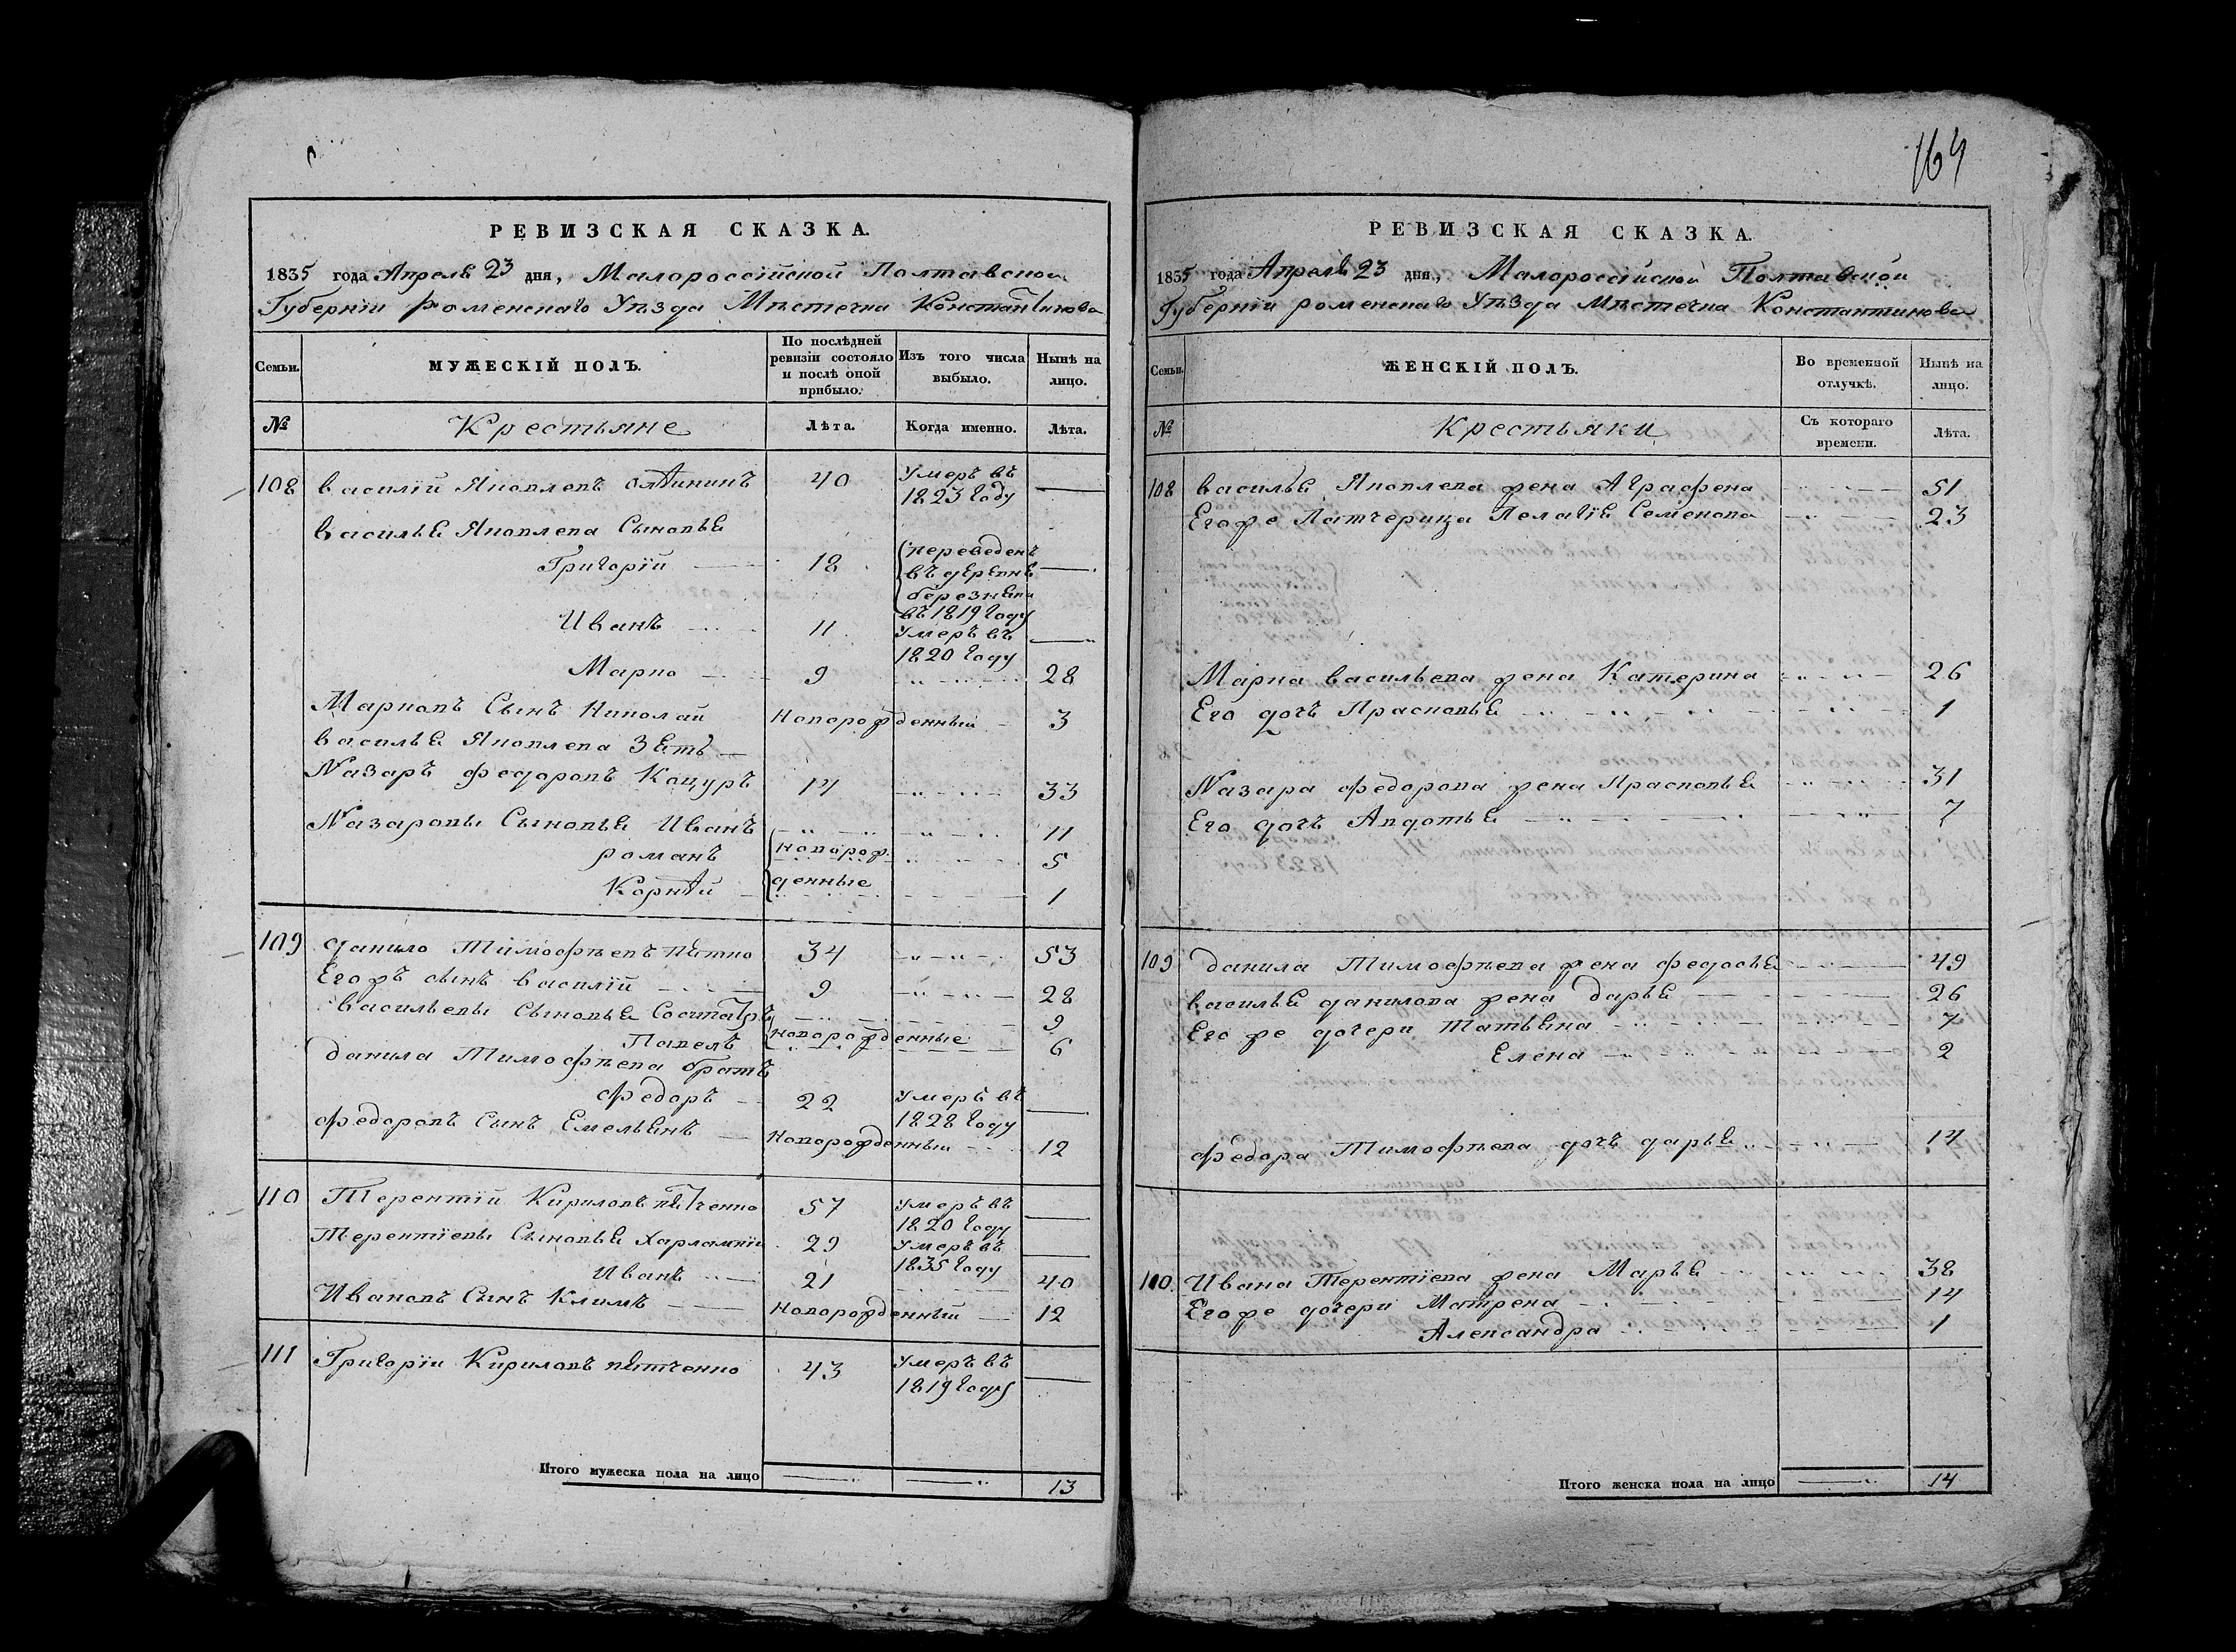 164
РЕВИЗСКАЯ СКАЗКА.
1835 года Апреля 23 дня, Малороссійской Полтавской
Губерніи роменскаго Уѣзда Мѣстечка Константинова
Семьи.
МУЖЕСКІЙ ПОЛЪ.
По послѣдней ревизіи состояло и послѣ оной прибыло.
Изъ того числа выбыло.
Нынѣ на лицо.
№
Крестьяне
Лѣта.
Когда именно.
Лѣта.
108 василій Яковлевъ 40 Умеръ въ 1823 году
василья Яковлева Сыновья
Григорій 18 переведенъ въ деревнѣ въ 1819 году
Иванъ 11 Умеръ въ 1820 году
Марко 9 28
Марковъ Сынъ Николай Новорожденный 3
василья Яковлева Зять
Назаръ федоровъ Коцуръ 14 33
Назаровы Сыновья Иванъ 11
романъ Новорож- 5
Корнѣй денные 1
109 данило Тимофѣевъ пятко 34 53
Егожъ сынъ василій 9 28
васильевы Сыновья 9
Павелъ новорожденные 6
данила Тимофѣева братъ
федоръ 22 Умеръ въ 1828 году
федоровъ Сынъ Емельянъ Новорожденный 12
110 Терентій Кириловъ пятченко 57 Умеръ въ 1820 году
Терентіевы Сыновья Харлампій 29 Умеръ въ 1835 году
Иванъ 21 40
Ивановъ Сынъ Климъ Новорожденный 12
111 Григорій Кириловъ пятченко 43 Умеръ въ 1819 году
Итого мужеска пола на лицо 13
РЕВИЗСКАЯ СКАЗКА.
1835 года Апреля 23 дня, Малороссійской Полтавской
Губерніи роменскаго Уѣзда Мѣстечка Константинова
Семьи.
ЖЕНСКІЙ ПОЛЪ.
Во временной отлучкѣ.
Нынѣ на лицо.
№
Крестьяки
Съ котораго времени.
Лѣта.
108 василья Яковлева жена Аграфена 51
Егоже Патчерица Пелагія Семенова 23
Марка васильева жена Катерина 26
Его дочь Прасковья 1
Назара федорова жена Прасковья 31
Его дочь Авдотья 7
109 данила Тимофѣева жена федосья 49
василья данилова жена дарья 26
Егоже дочери Татьяна 7
Елена 2
федора Тимофѣева дочь дарья 14
110 Ивана Терентіева жена Марья 38
Егоже дочери Матрена 14
Александра 1
Итого женска пола на лицо 14